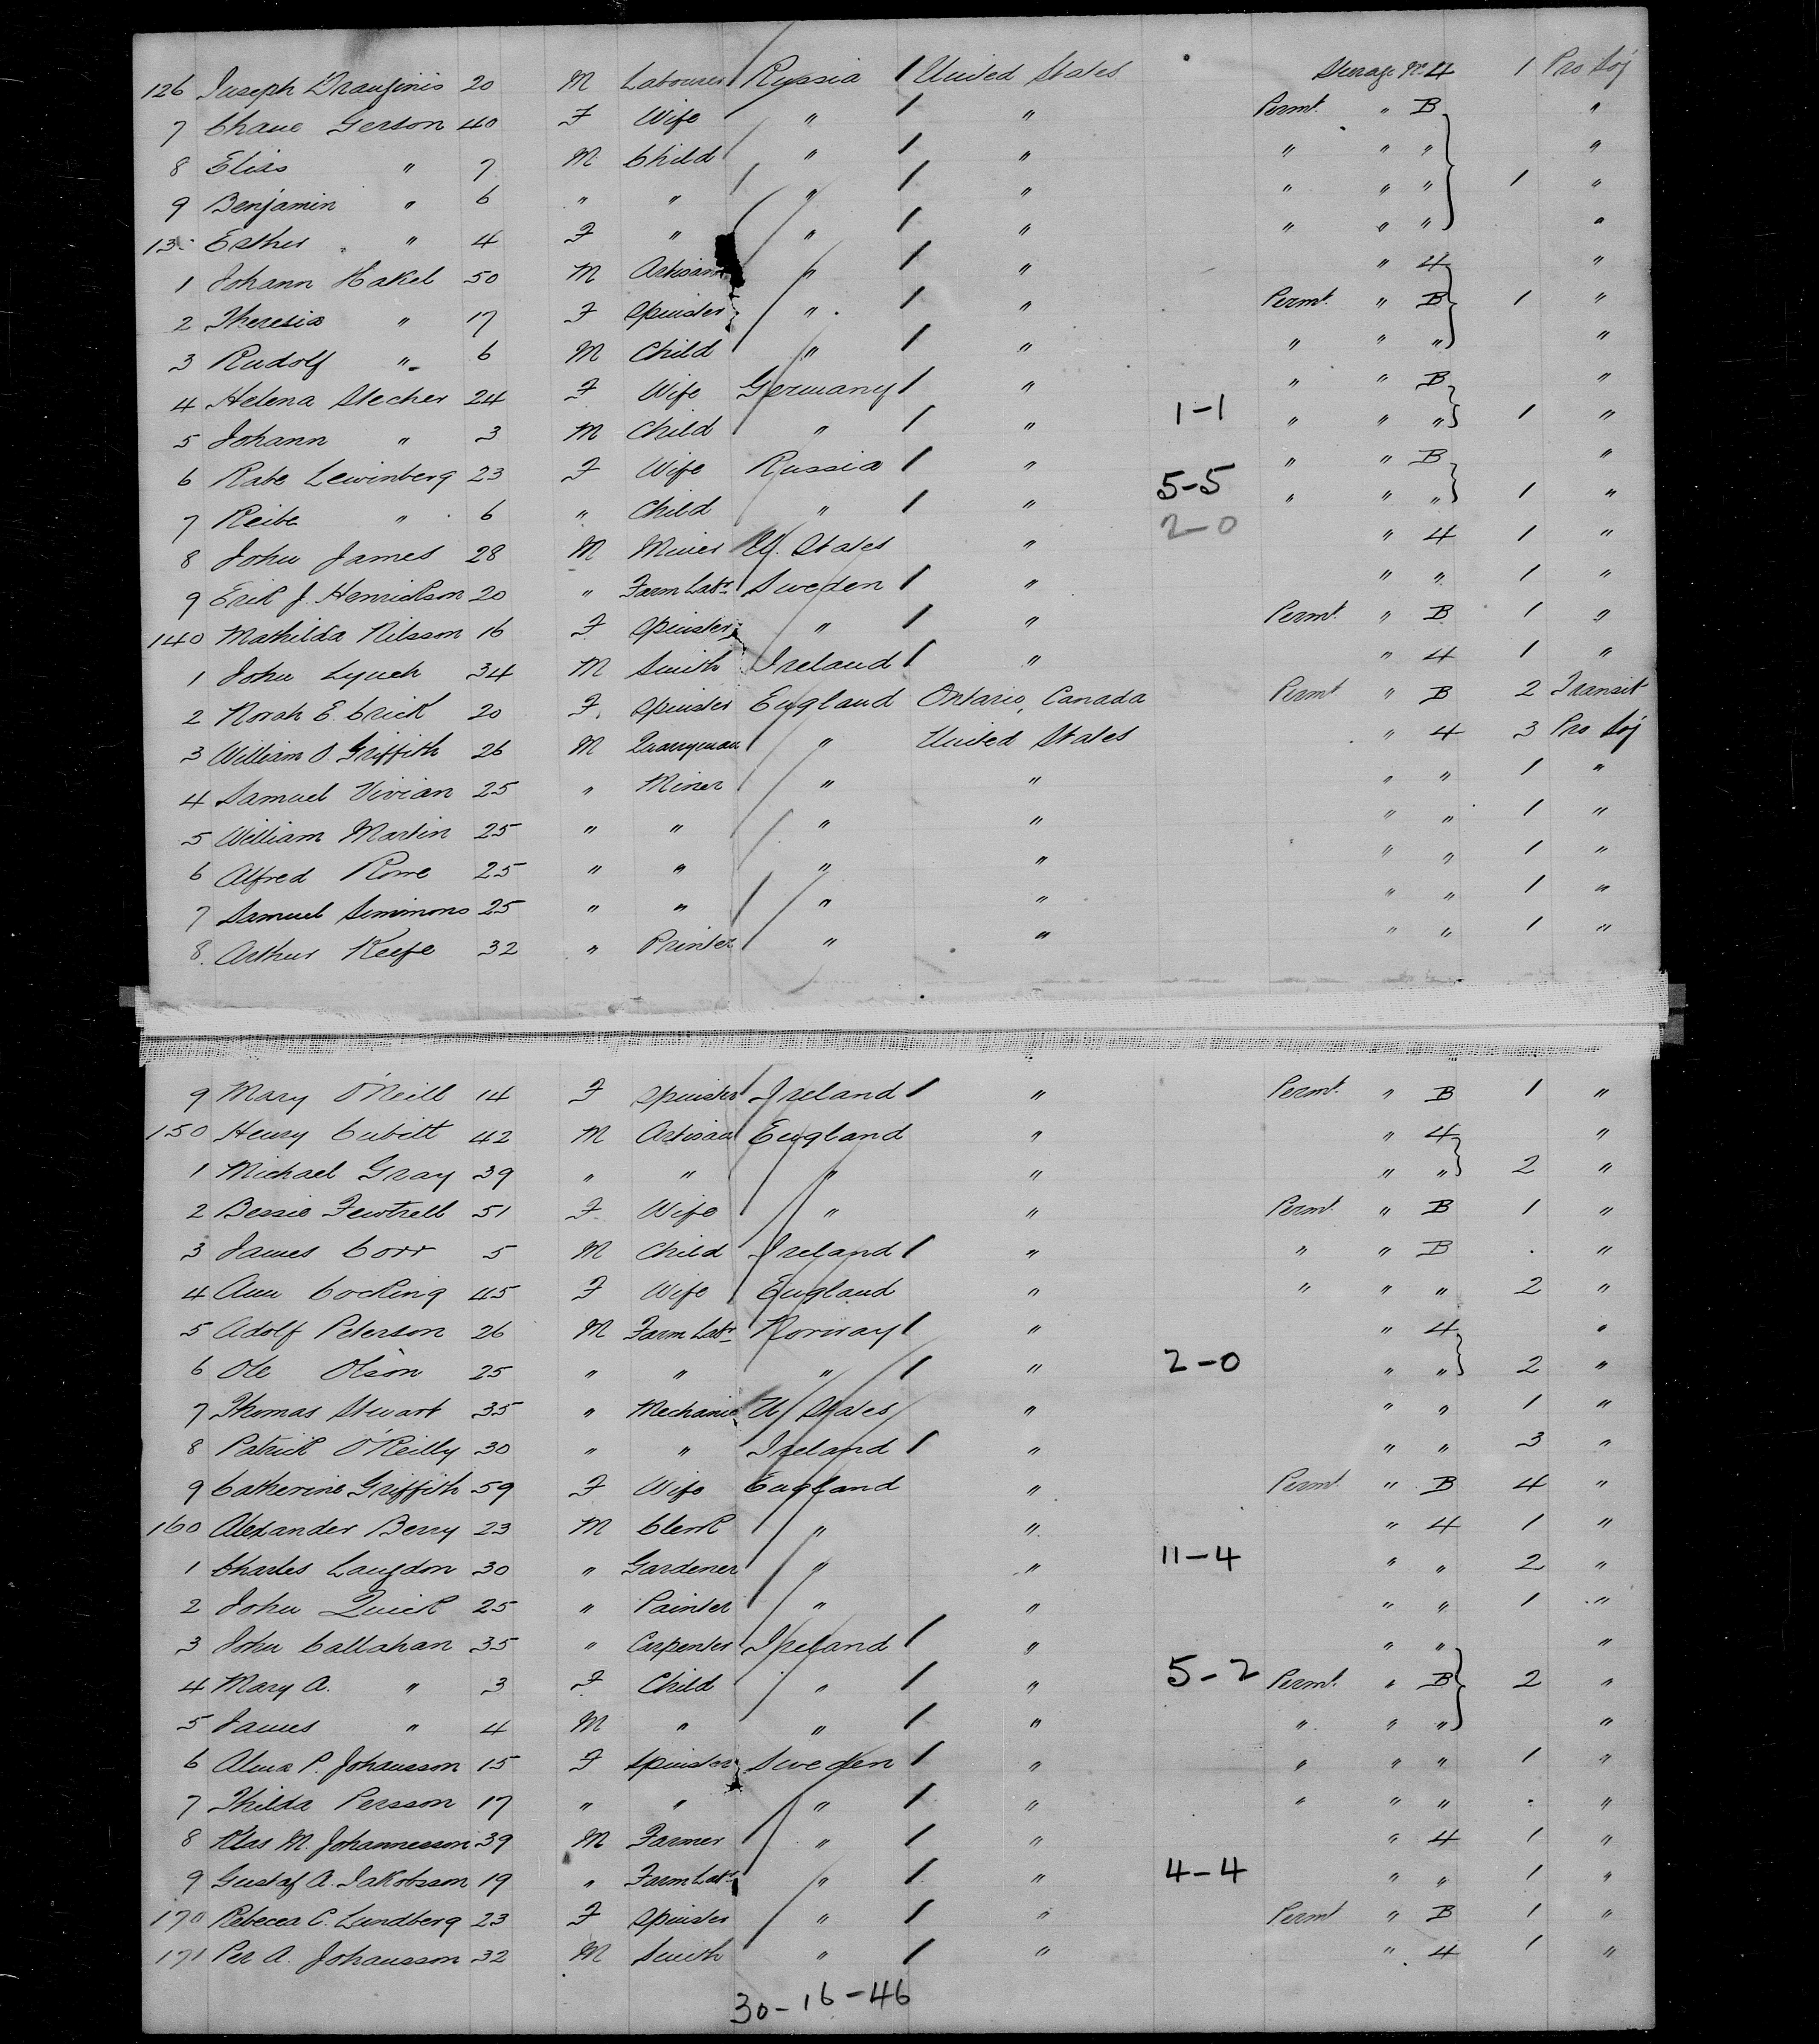 126 Joseph Drauginis 20 M Labourer Russia / United States Steerage No 4 1 Pro Soj
7 Chane Gerson 40 F Wife " / " Permt. " B "
8 Elias " 7 M Child " / " " " " "
9 Benjamin " 6 " " " / " " " " 1 "
13 Esther " 4 F " " / " " " " "
1 Johann Hakel 50 M Artisan " / " " 4 "
2 Theresia " 17 F Spinster " / " Permt. " B 1 "
3 Rudolf " 6 M Child " / " " " " "
4 Helena Stecher 24 F Wife Germany / " " " B "
5 Johann " 3 M Child " / " 1-1 " " " 1 "
6 Rabe Lewinberg 23 F Wife Russia / " " " B "
7 Reibe " 6 " Child " / " 5-5 " " " 1 "
8 John James 28 M Miner U. States " 2-0 " 4 1 "
9 Erik J. Henrickson 20 " Farm Labr Sweden / " " " 1 "
140 Mathilda Nilsson 16 F Spinster " / " Permt. " B 1 "
1 John Lynch 34 M Smith Ireland / " " 4 1 "
2 Norah E. Crick 20 F. Spinster England Ontario, Canada Permt " B 2 Transit
3 William O Griffith 26 M Quarryman " United States " 4 3 Pro Soj
4 Samuel Vivian 25 " Miner " " " " 1 "
5 William Martin 25 " " " " " " 1 "
6 Alfred Rowe 25 " " " " " " 1 "
7 Samuel Simmons 25 " " " " " " 1 "
8. Arthur Keefe 32 " Printer " " " " 1 "
9 Mary O'Neill 14 F Spinster Ireland / " Permt. " B 1 "
150 Henry Cubitt 42 M Artisan England " " 4 "
1 Michael Gray 39 " " " " " " 2 "
2 Bessie Fewtrell 51 F Wife " " Permt. " B 1 "
3 James Corr 5 M Child Ireland / " " " B . "
4 Ann Cocking 45 F Wife England " " " " 2 "
5 Adolf Peterson 26 M Farm Labr Norway / " " 4 "
6 Ole Olson 25 " " " / " 2-0 " " 2 "
7 Thomas Stewart 35 " Mechanic U States " " " 1 "
8 Patrick O'Reilly 30 " " Ireland / " " " 3 "
9 Catherine Griffith 59 F Wife England " Permt. " B 4 "
160 Alexander Berry 23 M Clerk " " " 4 1 "
1 Charles Langdon 30 " Gardener " " 11-4 " " 2 "
2 John Quick 25 " Painter " " " " 1 "
3 John Callahan 35 " Carpenter Ireland / " " " "
4 Mary A. " 3 F Child " / " 5-2 Permt. " B 2 "
5 James " 4 M " " / " " " " "
6 Alma P. Johansson 15 F Spinster Sweden / " " " " 1 "
7 Thilda Persson 17 " " " / " " " " . "
8 Klas M. Johannesson 39 M Farmer " / " " 4 1 "
9 Gustaf A. Jakobsson 19 " Farm Labr " / " 4-4 " " 1 "
170 Rebecca C. Lundberg 23 F Spinster " / " Permt " B 1 "
171 Per A. Johansson 32 M Smith " / " " 4 1 "
30-16-46